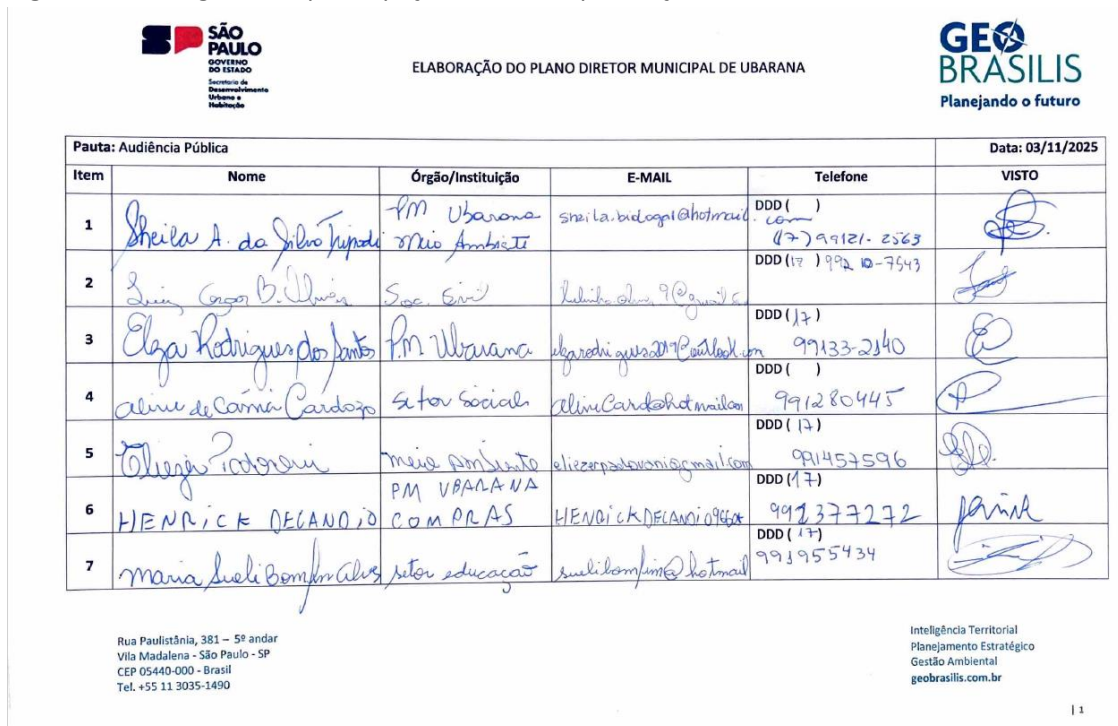 SÃO
PAULO
GOVERNO
DO ESTADO
Secretaria de
Desenvolvimento
Urbano e
Habitação
ELABORAÇÃO DO PLANO DIRETOR MUNICIPAL DE UBARANA
GEO
BRASILIS
Planejando o futuro
Pauta: Audiência Pública Data: 03/11/2025
Item Nome Órgão/Instituição E-MAIL Telefone VISTO
1 Sheila A. da Silva Tripodi PM Ubarana Meio Ambiete DDD ( ) (17) 99121-2563
2 B. Soc. Civil DDD (17)
3 Elza Rodrigues dos Santos P.M Ubarana elzarodrigues2019@outlook.com DDD (17) 99133-2140
4 Aline de Cardozo Setor Social DDD ( ) 991280445
5 Meio Ambiente eliezerpadovani@gmail.com DDD (17) 991457596
6 HENRICK DECANDIO PM UBARANA COMPRAS DDD (17) 992377272
7 Maria Sueli Bomfim Alves setor educação suelibomfim@hotmail DDD (17) 991955434
Rua Paulistânia, 381 – 5º andar
Vila Madalena - São Paulo - SP
CEP 05440-000 - Brasil
Tel. +55 11 3035-1490
Inteligência Territorial
Planejamento Estratégico
Gestão Ambiental
geobrasilis.com.br
| 1